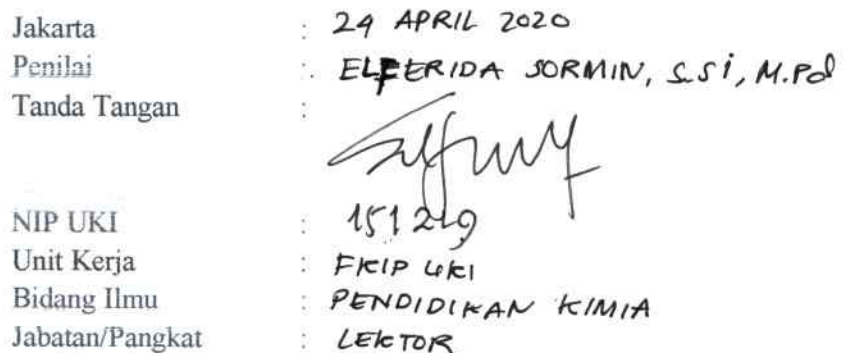 Jakarta : 24 APRIL 2020
Penilai : ELFERIDA SORMIN, S.Si, M.Pd
Tanda Tangan :
NIP UKI : 151219
Unit Kerja : FKIP UKI
Bidang Ilmu : PENDIDIKAN KIMIA
Jabatan/Pangkat : LEKTOR